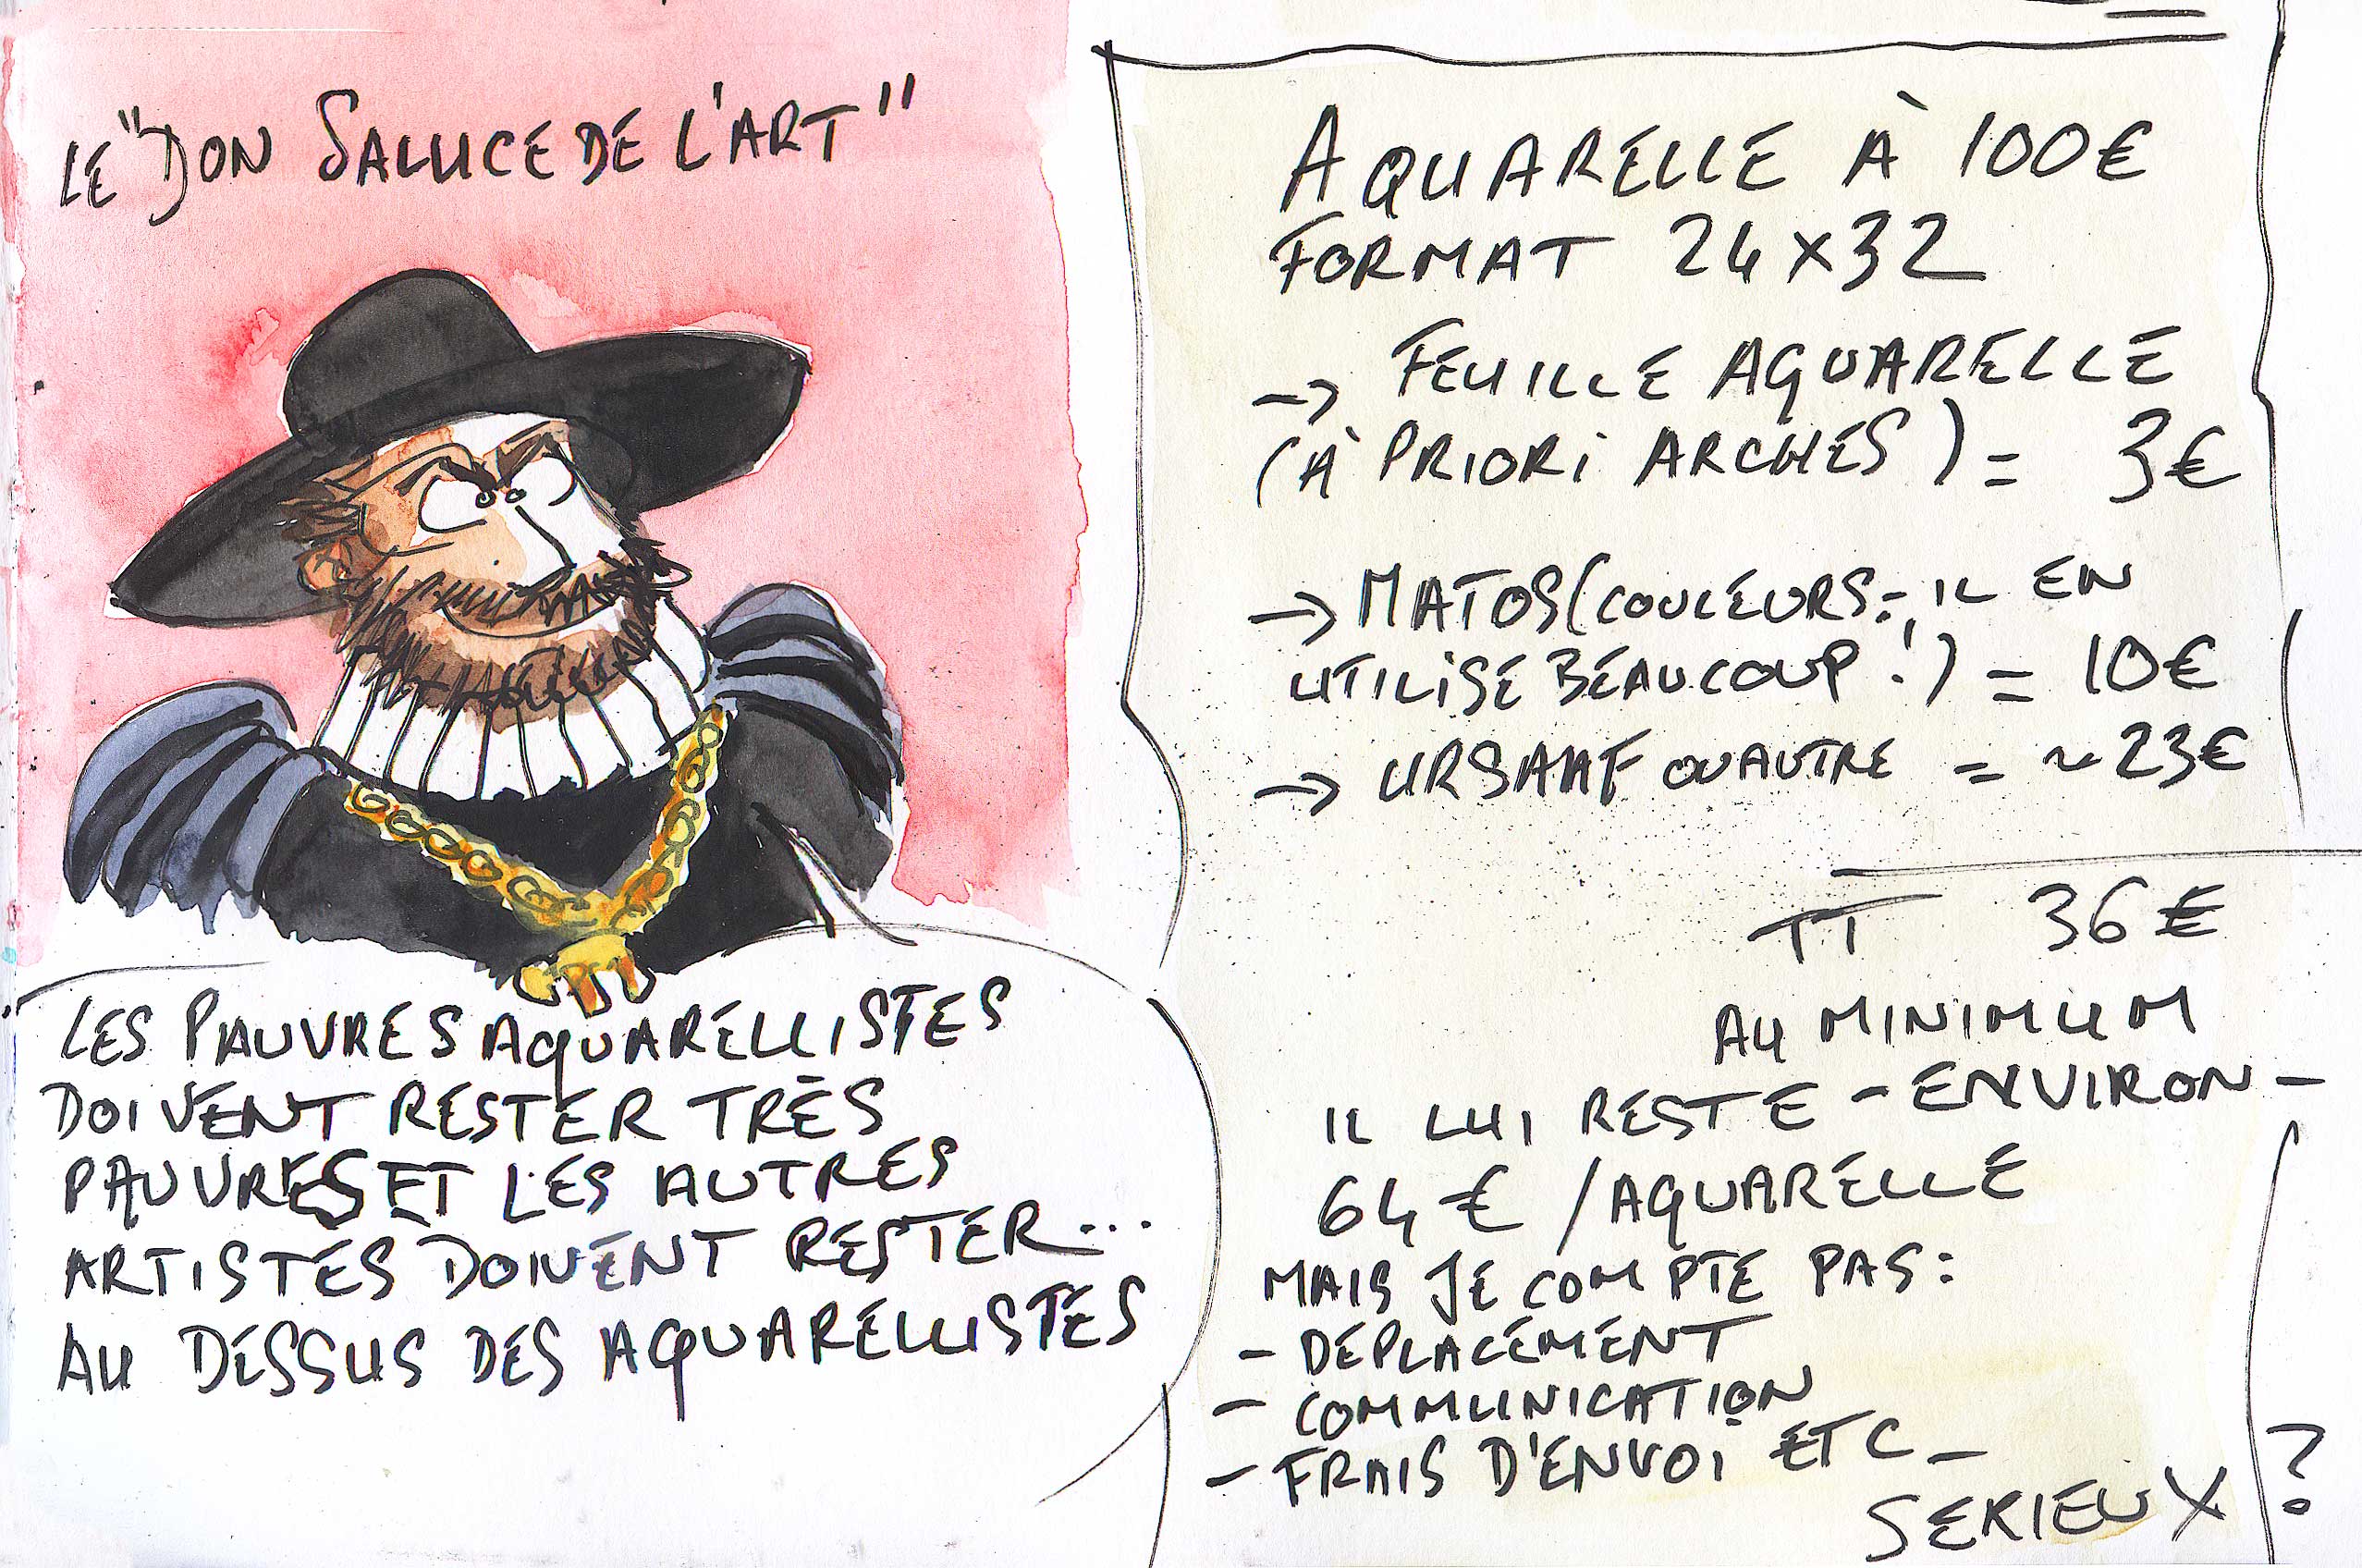 LE "DON SALLUCE DE L'ART"
LES PAUVRES AQUARELLISTES
DOIVENT RESTER TRÈS
PAUVRES ET LES AUTRES
ARTISTES DOIVENT RESTER...
AU DESSUS DES AQUARELLISTES
AQUARELLE À 100€
FORMAT 24x32
→ FEUILLE AQUARELLE
(À PRIORI ARCHES) = 3€
→ MATOS (COULEURS = IL EN
UTILISE BEAUCOUP!) = 10€
→ URSAAF OU AUTRE = ~23€
TT 36€
AU MINIMUM
IL LUI RESTE - ENVIRON -
64€ /AQUARELLE
MAIS JE COMPTE PAS:
- DÉPLACEMENT
- COMMUNICATION
- FRAIS D'ENVOI ETC -
SERIEUX ?